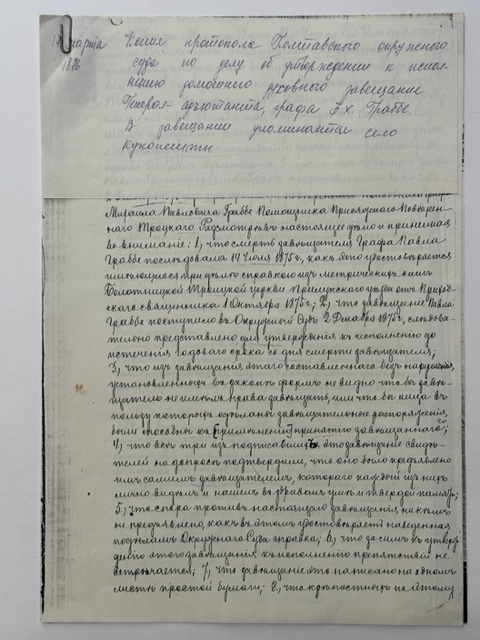 18 марта 1876
Копия протокола Полтавского окружного
суда по делу об утверждении к испол-
нению домашнего духовного завещания
Генерал-адъютанта, графа П.Х. Граббе.
В завещании упоминается село
Куконешты
Михаила Павловича Граббе Помощника Присяжнаго Повѣрен-
наго Троцкаго. Разсмотрѣвъ настоящее дѣло и принимая
во вниманіе: 1, что смерть завѣщателя Графа Павла
Граббе послѣдовала 14 Іюля 1875 г., какъ это удостовѣряется
имѣющеюся при дѣлѣ справкою изъ метрическихъ книгъ
Троицкой церкви Прилукскаго уѣзда отъ Приход-
скаго священника 1 Октября 1875 г.; 2, что завѣщаніе Павла
Граббе поступило въ Окружный Судъ 2 Декабря 1875 г., слѣдова-
тельно представлено для утвержденія къ исполненію до
истеченія годоваго срока со дня смерти завѣщателя;
3, что изъ завѣщанія этаго составленнаго безъ нарушенія
установленныхъ въ законѣ формъ не видно что бы завѣ-
щатель не имѣлъ права завѣщать, или что бы лица въ
пользу которыхъ сдѣланы завѣщательное распоряженія
были неспособны къ принятію завѣщаннаго;
4, что всѣ три изъ подписавшихъ это завѣщаніе свидѣ-
телей на допросѣ подтвердили, что оно было предъявлено
имъ самимъ завѣщателемъ, котораго каждый изъ нихъ
лично видѣлъ и нашелъ въ здравомъ умѣ и твердой памяти;
5, что спора противъ настоящаго завѣщанія никѣмъ
не предъявлено, какъ въ этомъ удостовѣряетъ наведенная
по дѣламъ Окружнаго Суда справка; 6, что за симъ къ утверж-
денію этаго завѣщанія къ исполненію препятствій не
встрѣчается; 7, что завѣщаніе это написано на одномъ
листѣ простой бумаги; 8, что крѣпостныхъ по этому